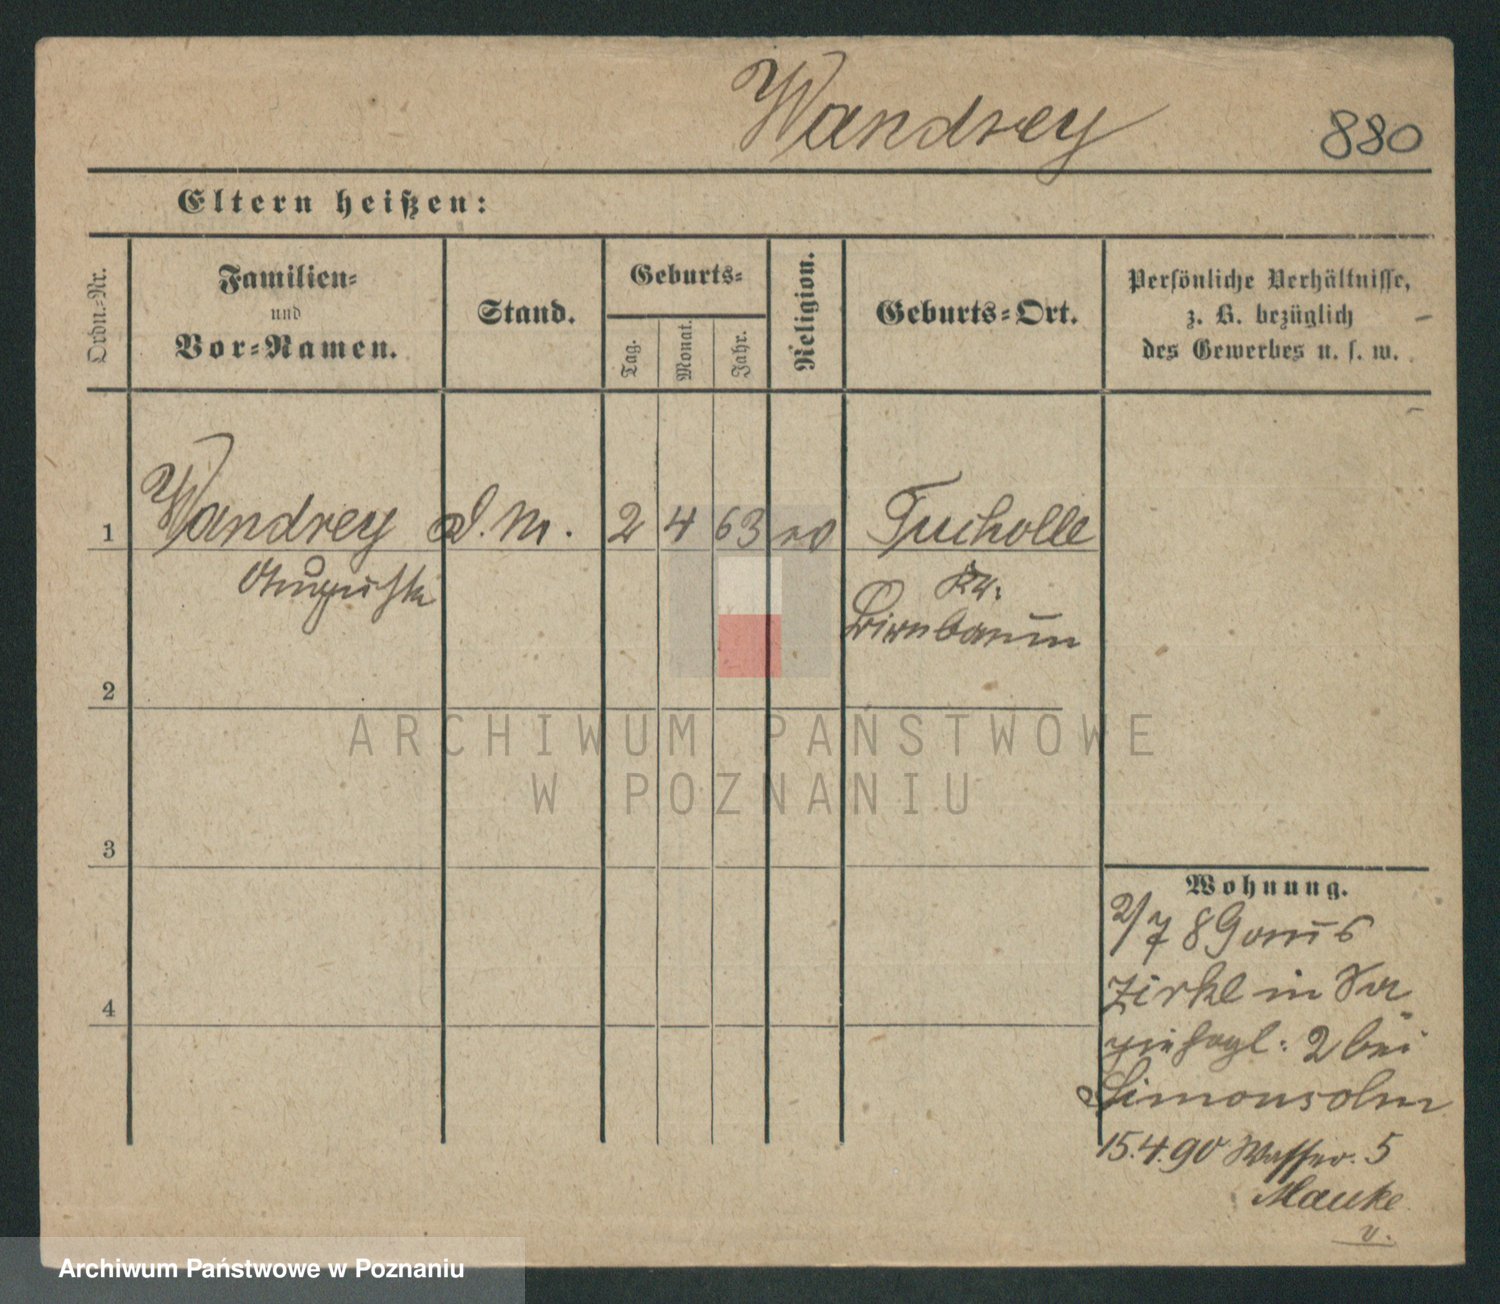 Wandrey 880
Eltern heißen:
Ordn.-Nr.
Familien-
und
Vor-Namen.
Stand.
Geburts-
Tag.
Monat.
Jahr.
Religion.
Geburts-Ort.
Persönliche Verhältnisse,
z. B. bezüglich
des Gewerbes u. s. w.
1 Wandrey D. M. 2 4 63 ev Tucholle
Auguste Kr.
Birnbaum
2
3
4
Wohnung.
2/7 8
Zirke in
2 bei
Simonsohn
15.4.90 Wasser. 5
Mauke
v.
ARCHIWUM PAŃSTWOWE
W POZNANIU
Archiwum Państwowe w Poznaniu